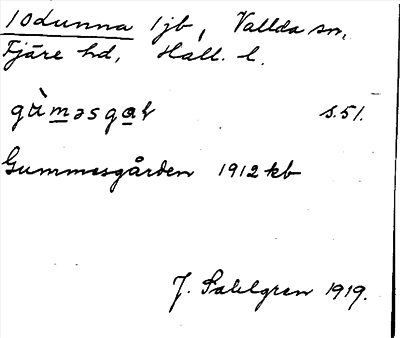 10dunna 1jb, Vallda sn,
Fjäre hd, Hall. l.
s. 51.
Gummesgården 1912 kb
J. Sahlgren 1919.